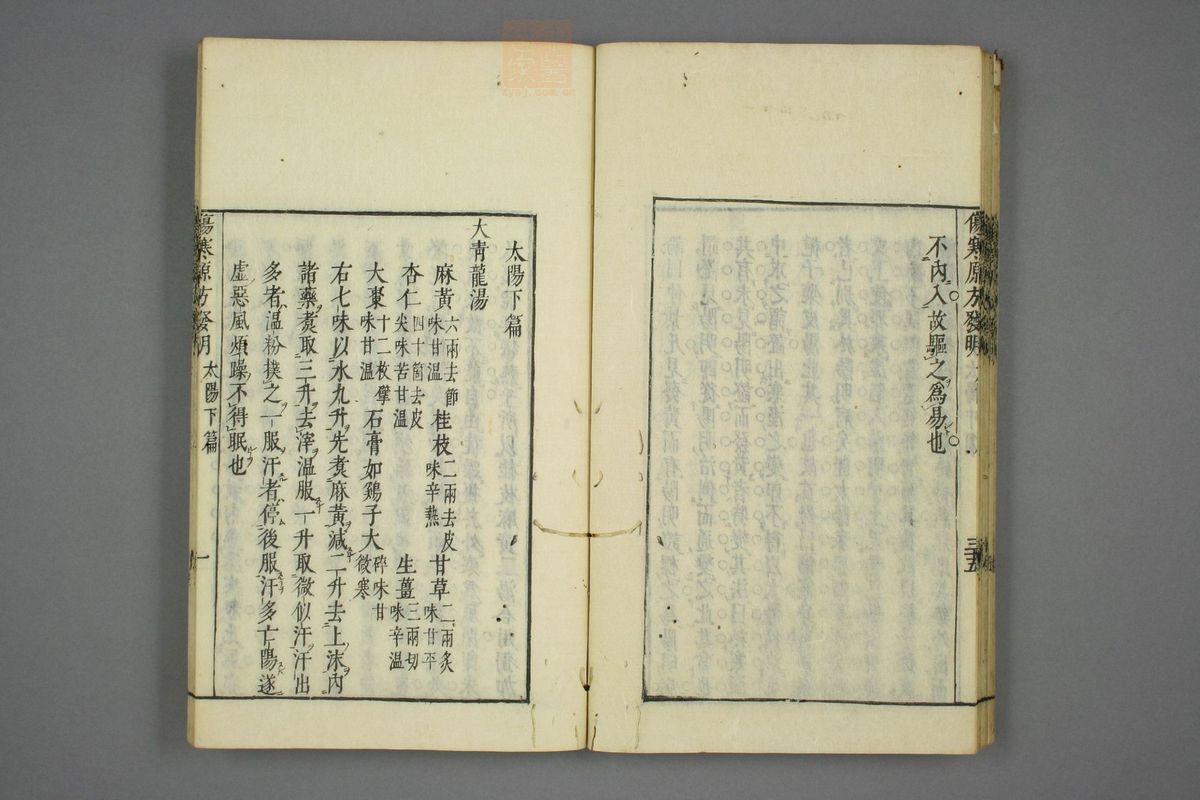 傷寒原方發明
三十五
不內入故驅之爲易也
太陽下篇
大靑龍湯
麻黃六兩去節味甘溫 桂枝二兩去皮味辛熱 甘草二兩炙味甘平
杏仁四十箇去皮尖味苦甘溫 生薑三兩切味辛溫
大棗十二枚擘味甘溫 石膏如鷄子大碎味甘微寒
右七味以水九升先煮麻黃減二升去上沫內
諸藥煮取三升去滓溫服一升取微似汗汗出
多者溫粉撲之一服汗者停後服汗多亡陽遂
虛惡風煩躁不得眠也
傷寒原方發明 太陽下篇 一
zysj.com.cn